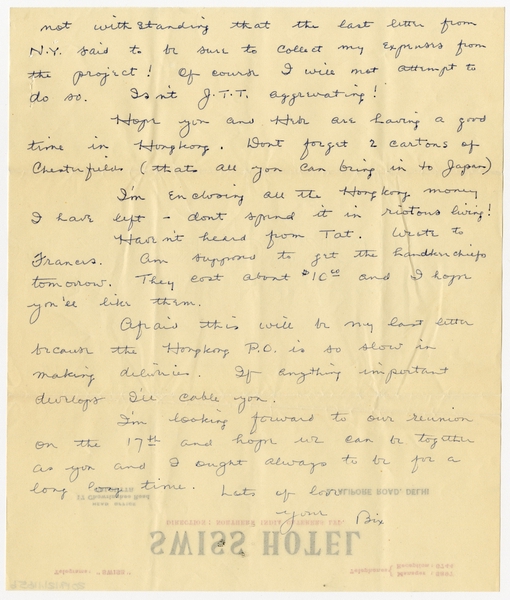 not withstanding that the last letter from
N.Y. said to be sure to collect my expenses from
the project! Of course I will not attempt to
do so. Isn't J.T.T. aggrevating!
Hope you and Hilr are having a good
time in Hongkong. Dont forget 2 cartons of
Chesterfields (thats all you can bring in to Japan)
I'm enclosing all the Hongkong money
I have left - dont spend it in riotous living!
Hav'nt heard from Tat. Wrote to
Frances. Am supposed to get the handkerchiefs
tomorrow. They cost about $10.00 and I hope
you'll like them.
Afraid this will be my last letter
because the Hongkong P.O. is so slow in
making deliveries. If anything important
develops I'll cable you.
I'm looking forward to our reunion
on the 17th and hope we can be together
as you and I ought always to be for a
long long time. Lots of love
your Bix
ALIPORE ROAD, DELHI
SWISS HOTEL
Telegrams: "SWISS"